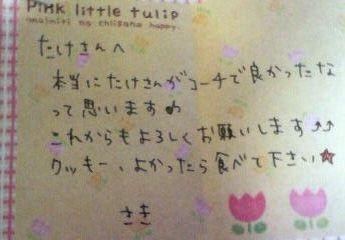 Pink little tulip
mainiti no chiisana happy.
たけさんへ
本当にたけさんがコーチで良かったな
って思います♪
これからもよろしくお願いします⤴⤴
クッキー、よかったら食べて下さい☆
さき